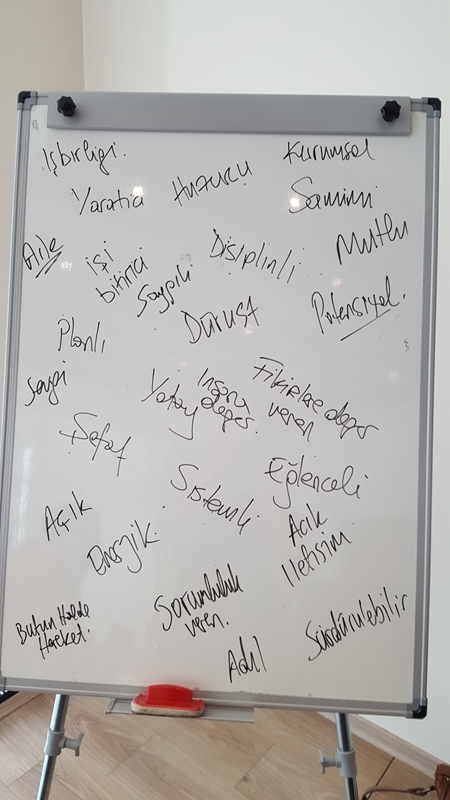 İşbirliği.
Kurumsal
Yaratıcı
Huzurcu
Samimi
Aile
işi
bitirici
Saygılı
Disiplinli
Mutlu
Planlı
Dürüst
Potensiyel.
saygı
Yatay
İnsana
değer.
Fikirlere değer
veren
Şefaf
Sistemli
Eğlenceli
Açık
Enerjik.
Acık
iletisim.
Bütün Halde
Hareket.
Sorumluluk
veren.
Adil
Sürdürülebilir